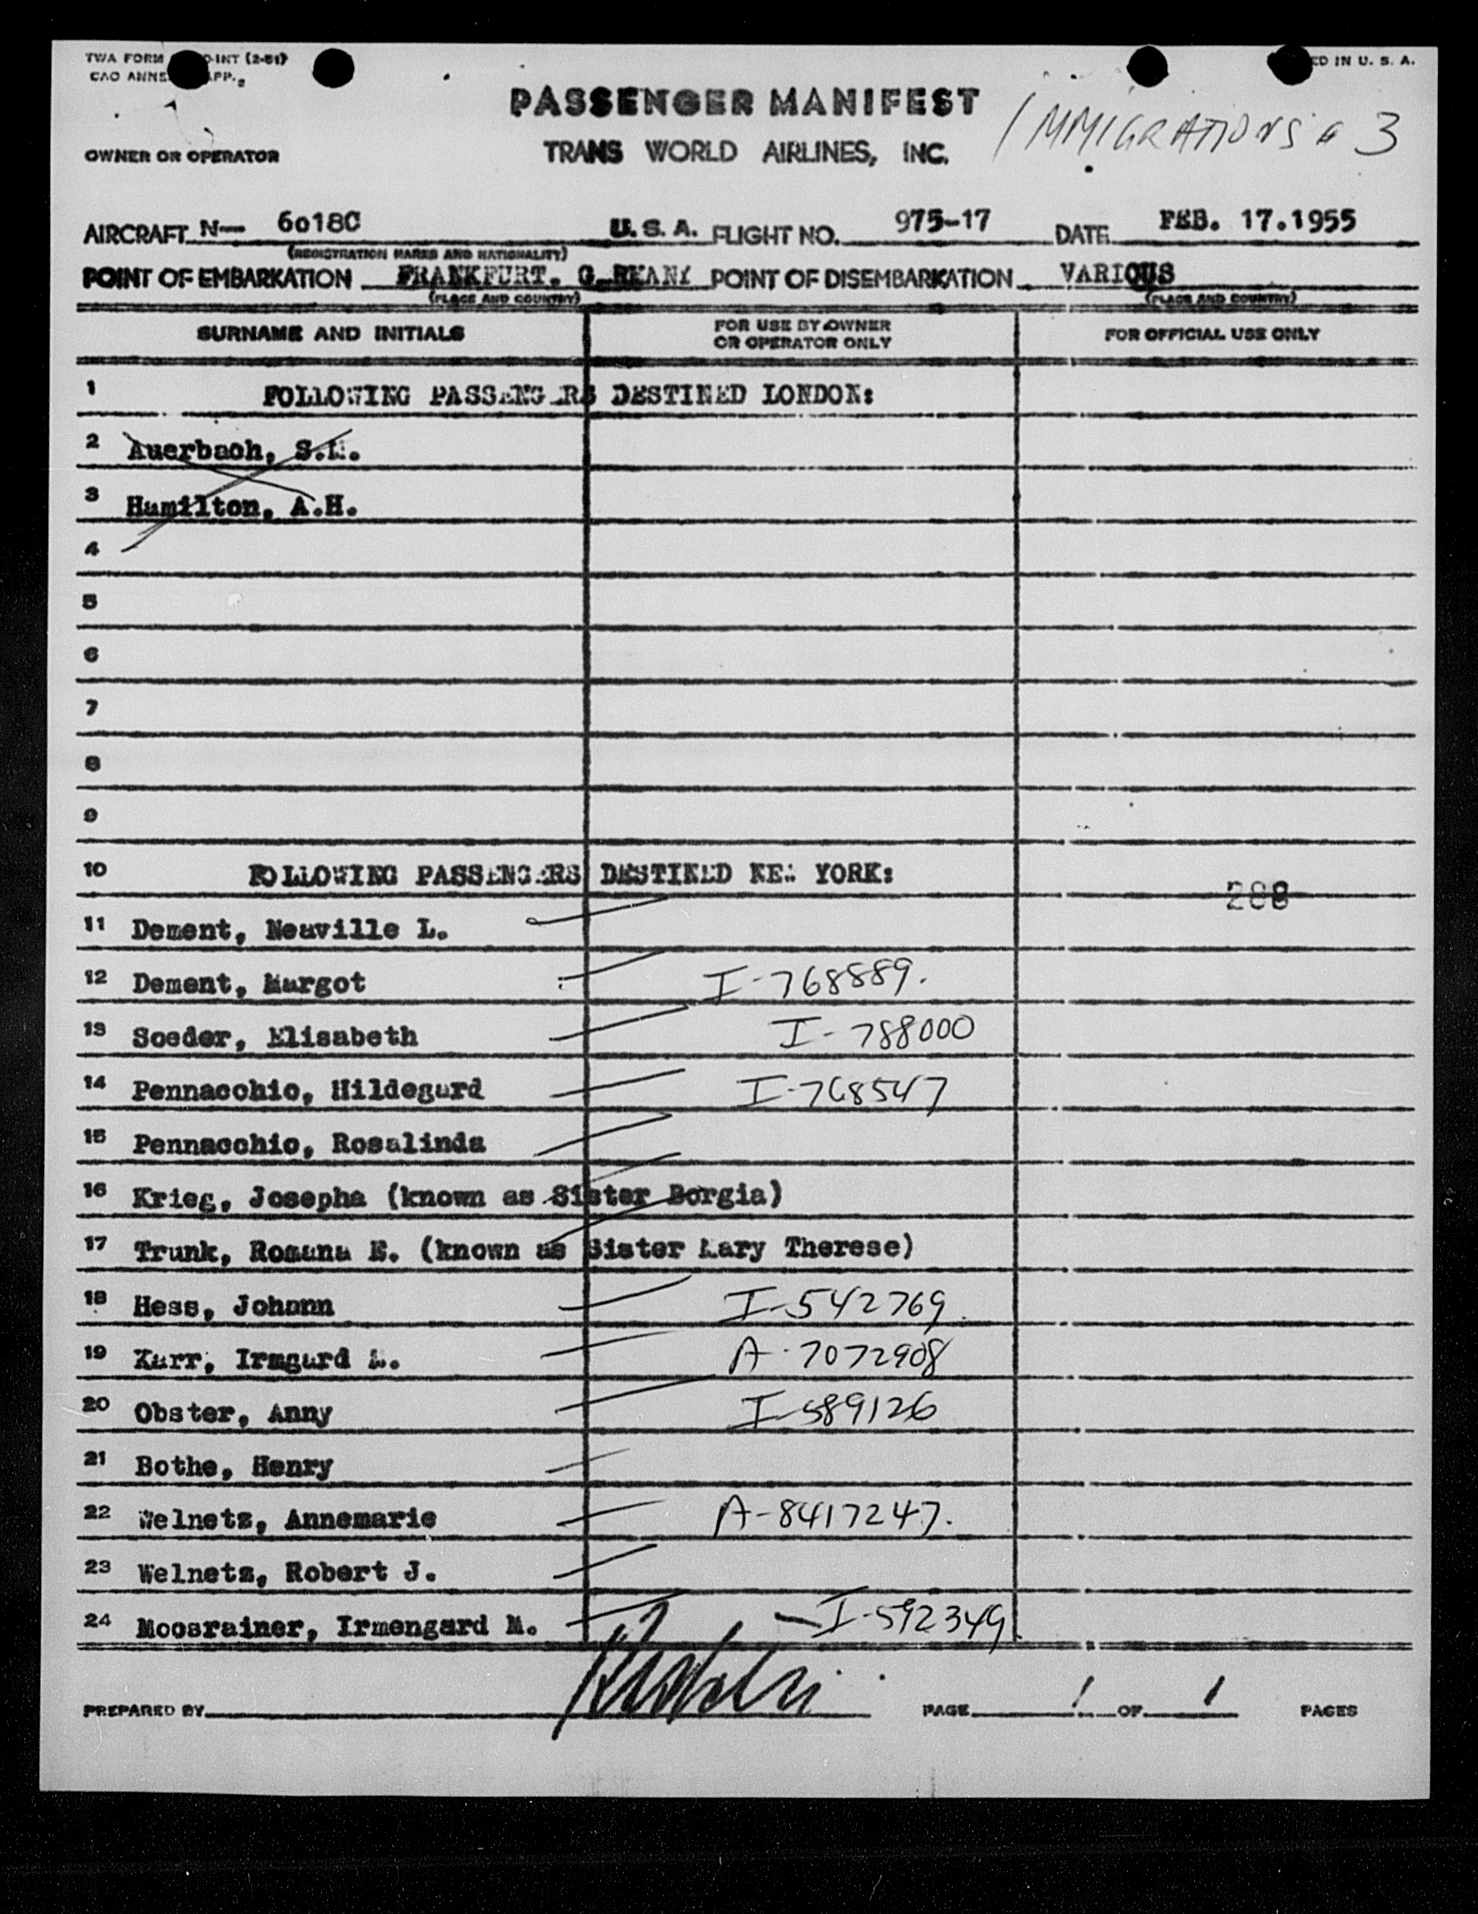 TWA FORM INT (2-51)
CAO ANNE APP.
ED IN U. S. A.
PASSENGER MANIFEST
IMMIGRATIONS # 3
OWNER OR OPERATOR
TRANS WORLD AIRLINES, INC.
AIRCRAFT N- 6018C U.S.A. FLIGHT NO. 975-17 DATE FEB. 17.1955
(REGISTRATION MARKS AND NATIONALITY)
POINT OF EMBARKATION FRANKFURT. GERMANY POINT OF DISEMBARKATION VARIOUS
(PLACE AND COUNTRY) (PLACE AND COUNTRY)
SURNAME AND INITIALS FOR USE BY OWNER OR OPERATOR ONLY FOR OFFICIAL USE ONLY
1 FOLLOWING PASSENGERS DESTINED LONDON:
2 Auerbach, S.
3 Hamilton, A.H.
4
5
6
7
8
9
10 FOLLOWING PASSENGERS DESTINED NEW YORK:
288
11 Dement, Neaville L.
12 Dement, Margot I-768889.
13 Soeder, Elisabeth I-788000
14 Pennacchio, Hildegard I-768547
15 Pennacchio, Rosalinda
16 Krieg, Josepha (known as Sister Borgia)
17 Trunk, Romana E. (known as Sister Mary Therese)
18 Hess, Johann I-542769.
19 Karr, Irmgard A-7072908
20 Obster, Anny I-589126
21 Bothe, Henry
22 Welnetz, Annemarie A-8417247.
23 Welnetz, Robert J.
24 Moosrainer, Irmengard M. I-592349
PREPARED BY PAGE 1 OF 1 PAGES